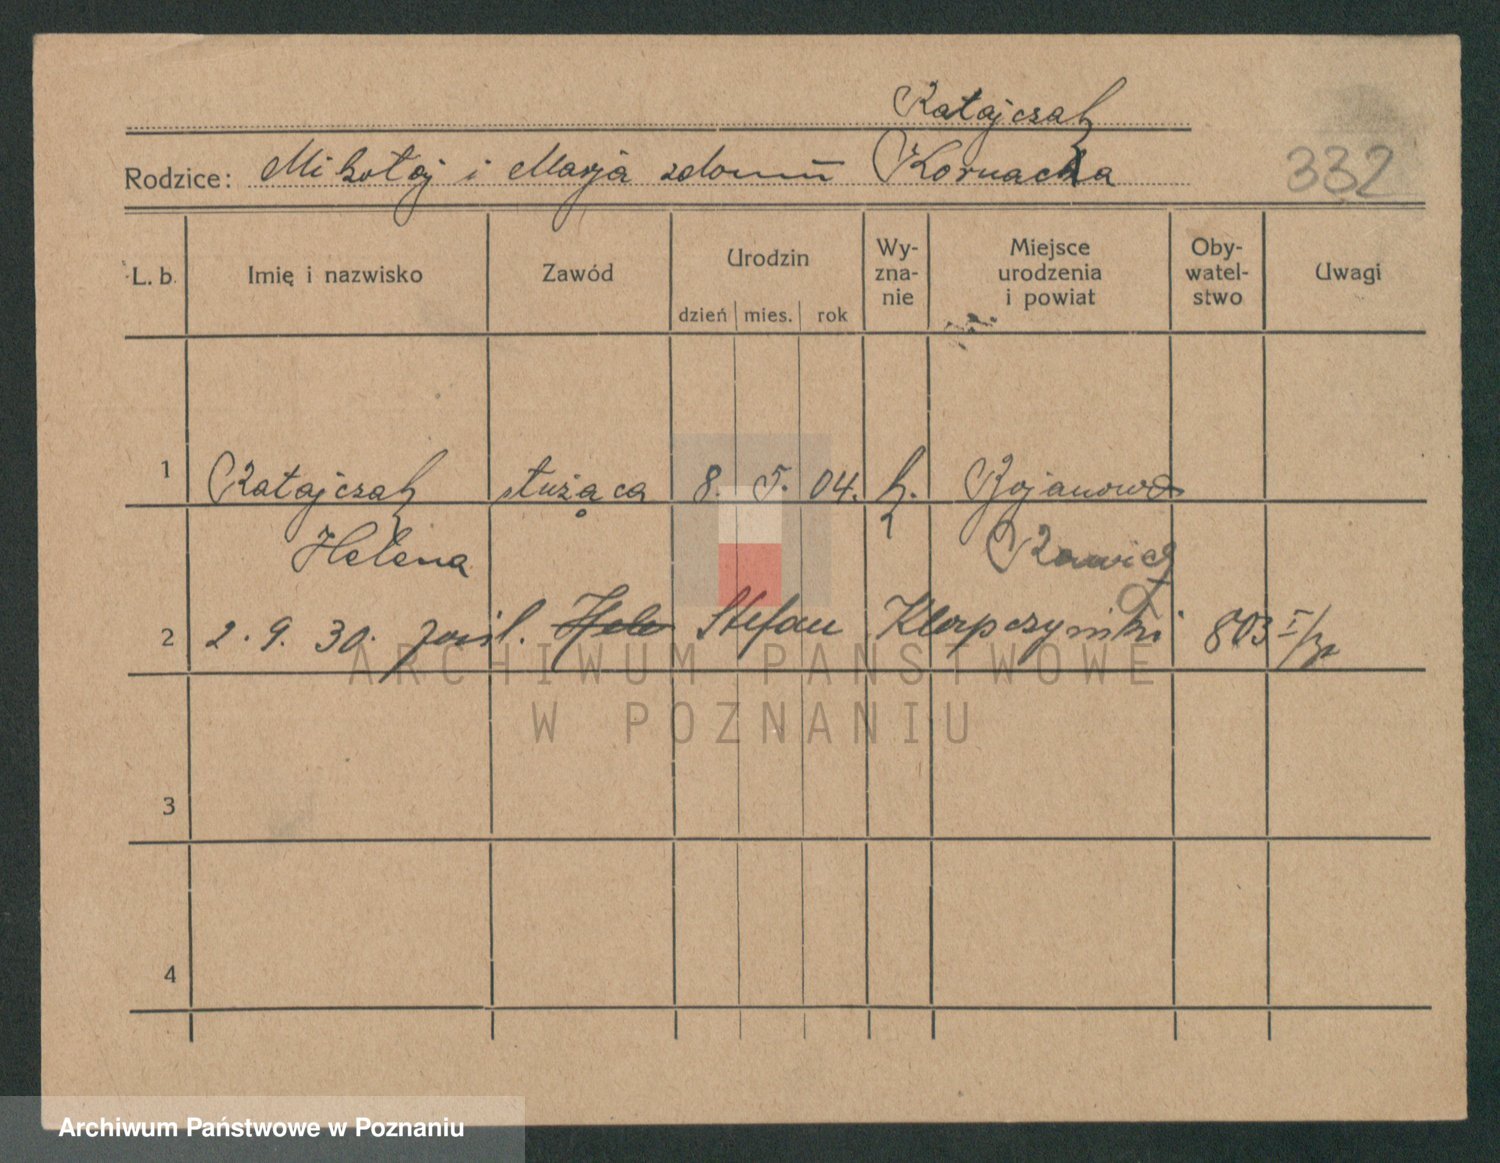 Katajczak
Rodzice: Mikołaj i Marja zdomu Kornacka
332
L. b. Imię i nazwisko Zawód Urodzin dzień mies. rok Wy-zna-nie Miejsce urodzenia i powiat Oby-watel-stwo Uwagi
1 Ratajczak służąca 8. 5. 04. k. Bojanowo
Helena Rawicz
2 2. 9. 30. Stefan Klapczyński 803 I/
ARCHIWUM PAŃSTWOWE
W POZNANIU
3
4
Archiwum Państwowe w Poznaniu